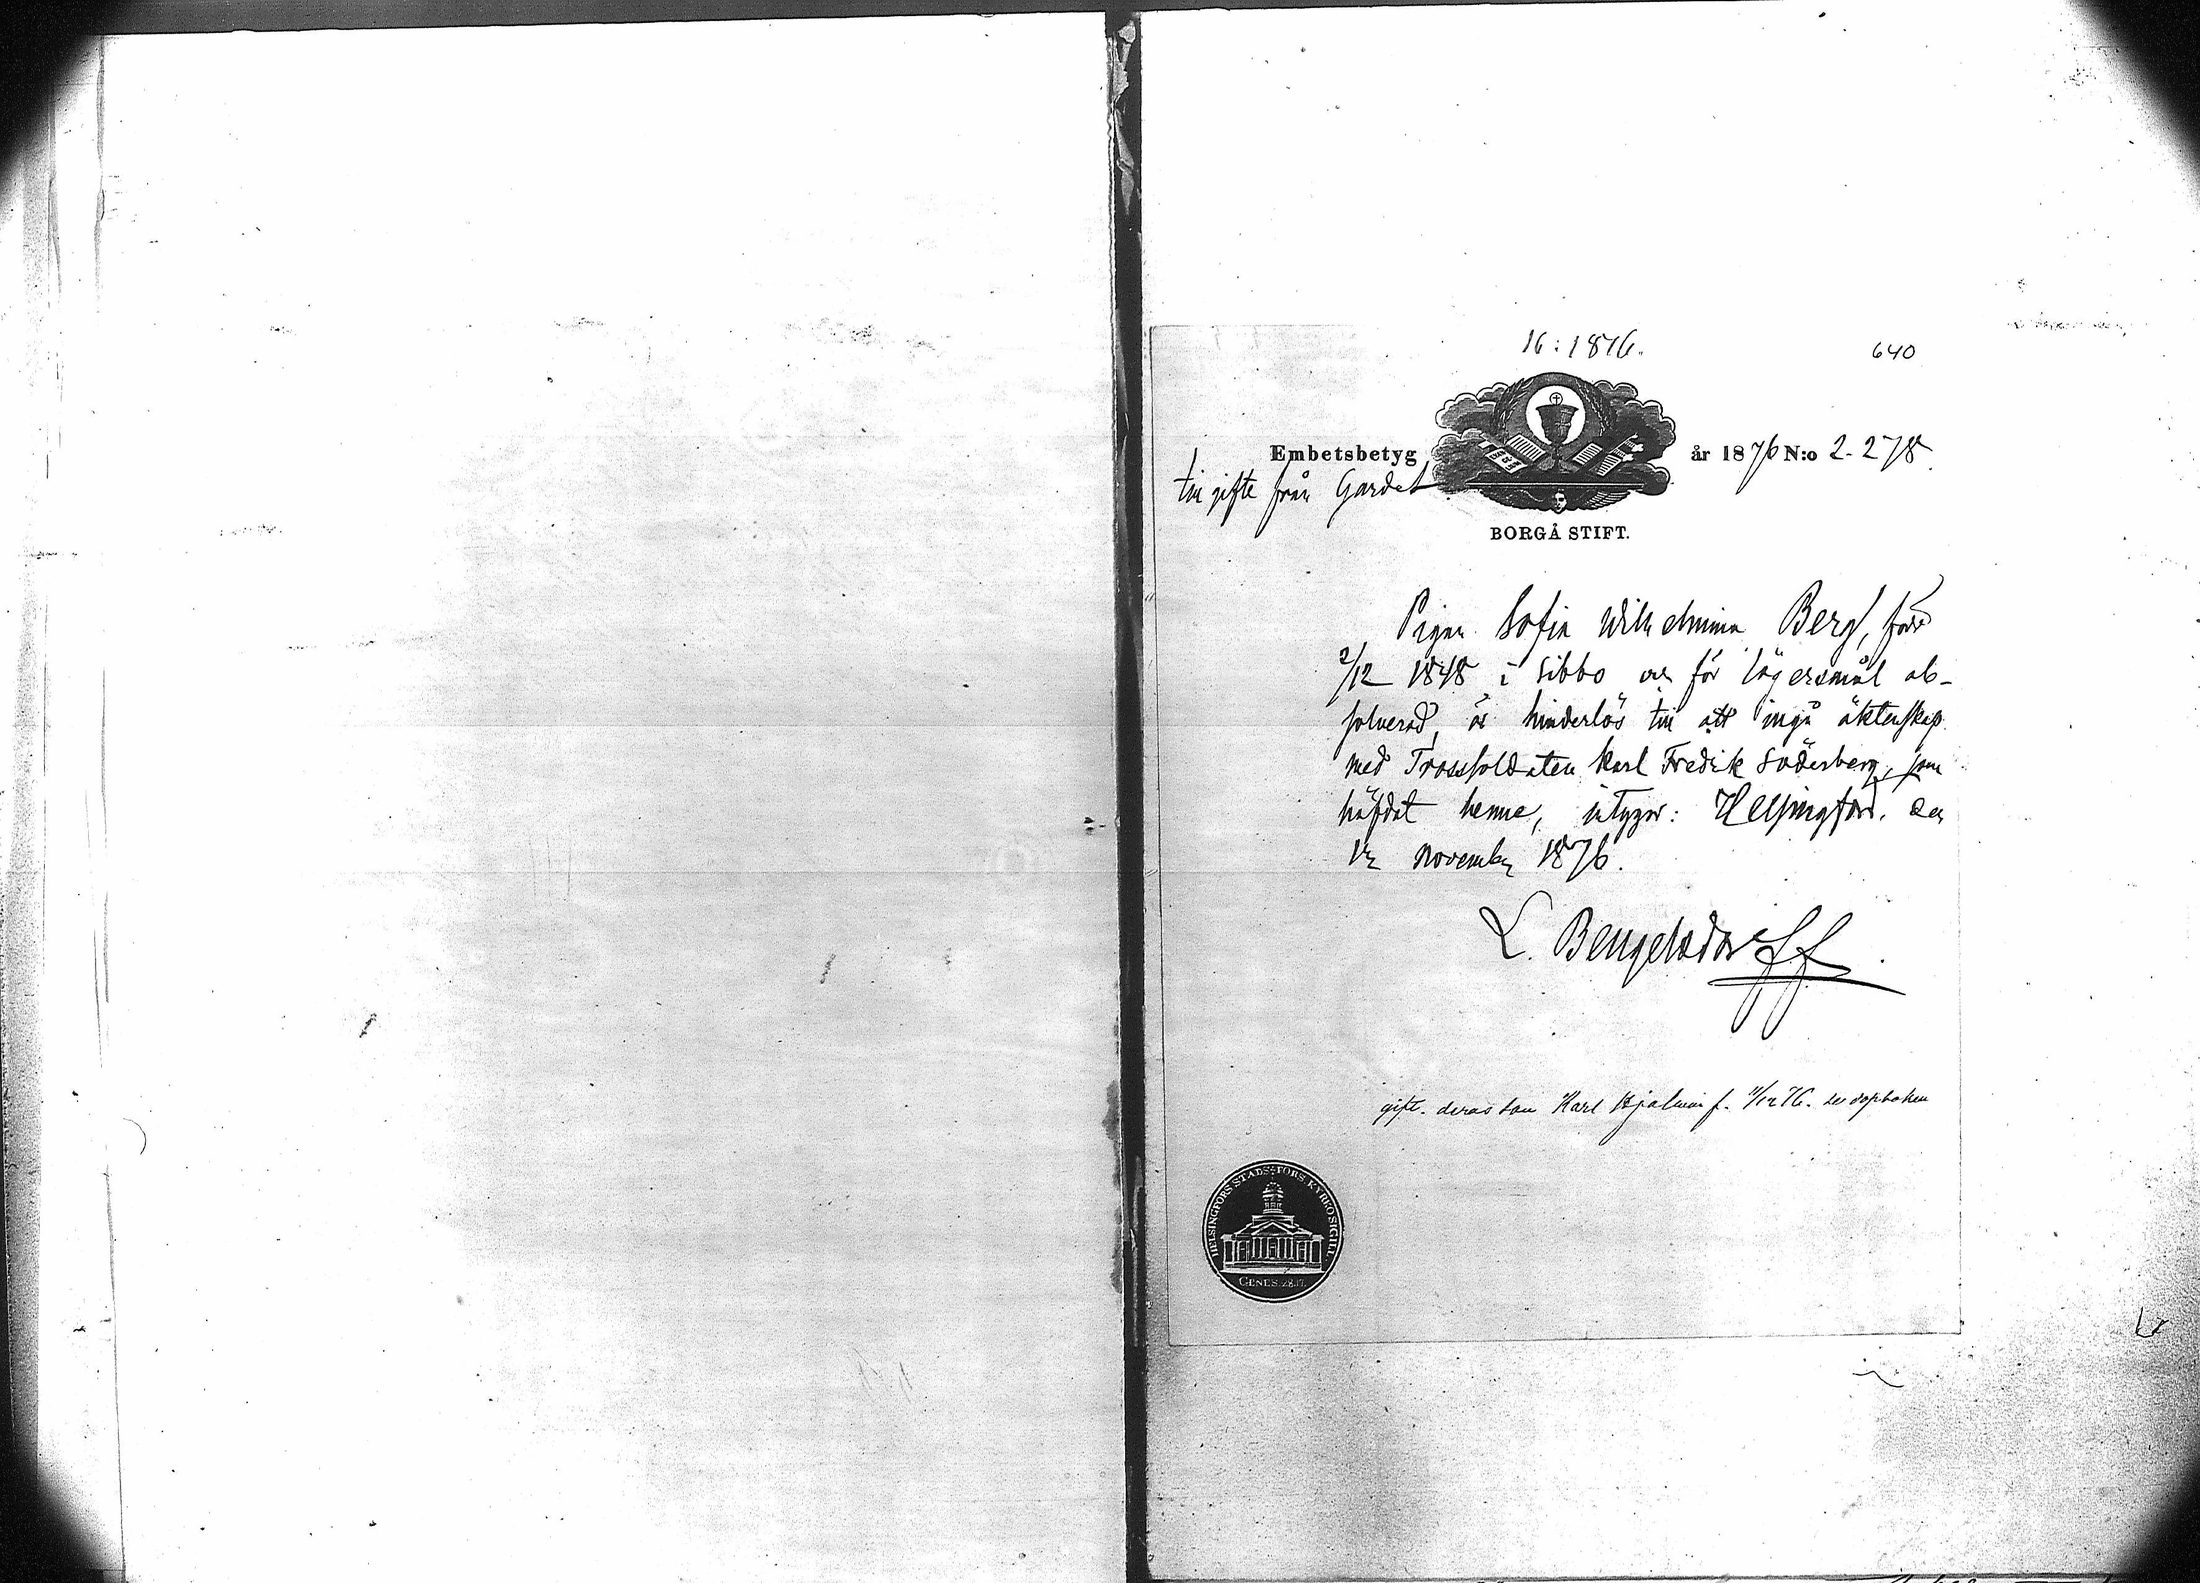 16:1876.
640
Embetsbetyg år 1876 N:o 2-278.
till gifte från Gardet
BORGÅ STIFT.
Pigan Sofia Wilhelmina Berg, född
2/12 1848 i Sibbo och för lägersmål ab-
solverad, är hinderlös till att ingå äktenskap
med Trossoldaten Karl Fredrik Söderberg, som
häfdat henne, intygar: Helsingfors, den
November 1876.
L. Bengelsdorff
gift. deras son Karl Hjalmar f. /12 76. se dopboken
HELSINGFORS STADS FÖRS. KYRKO SIGILL
GENES. 28.17.